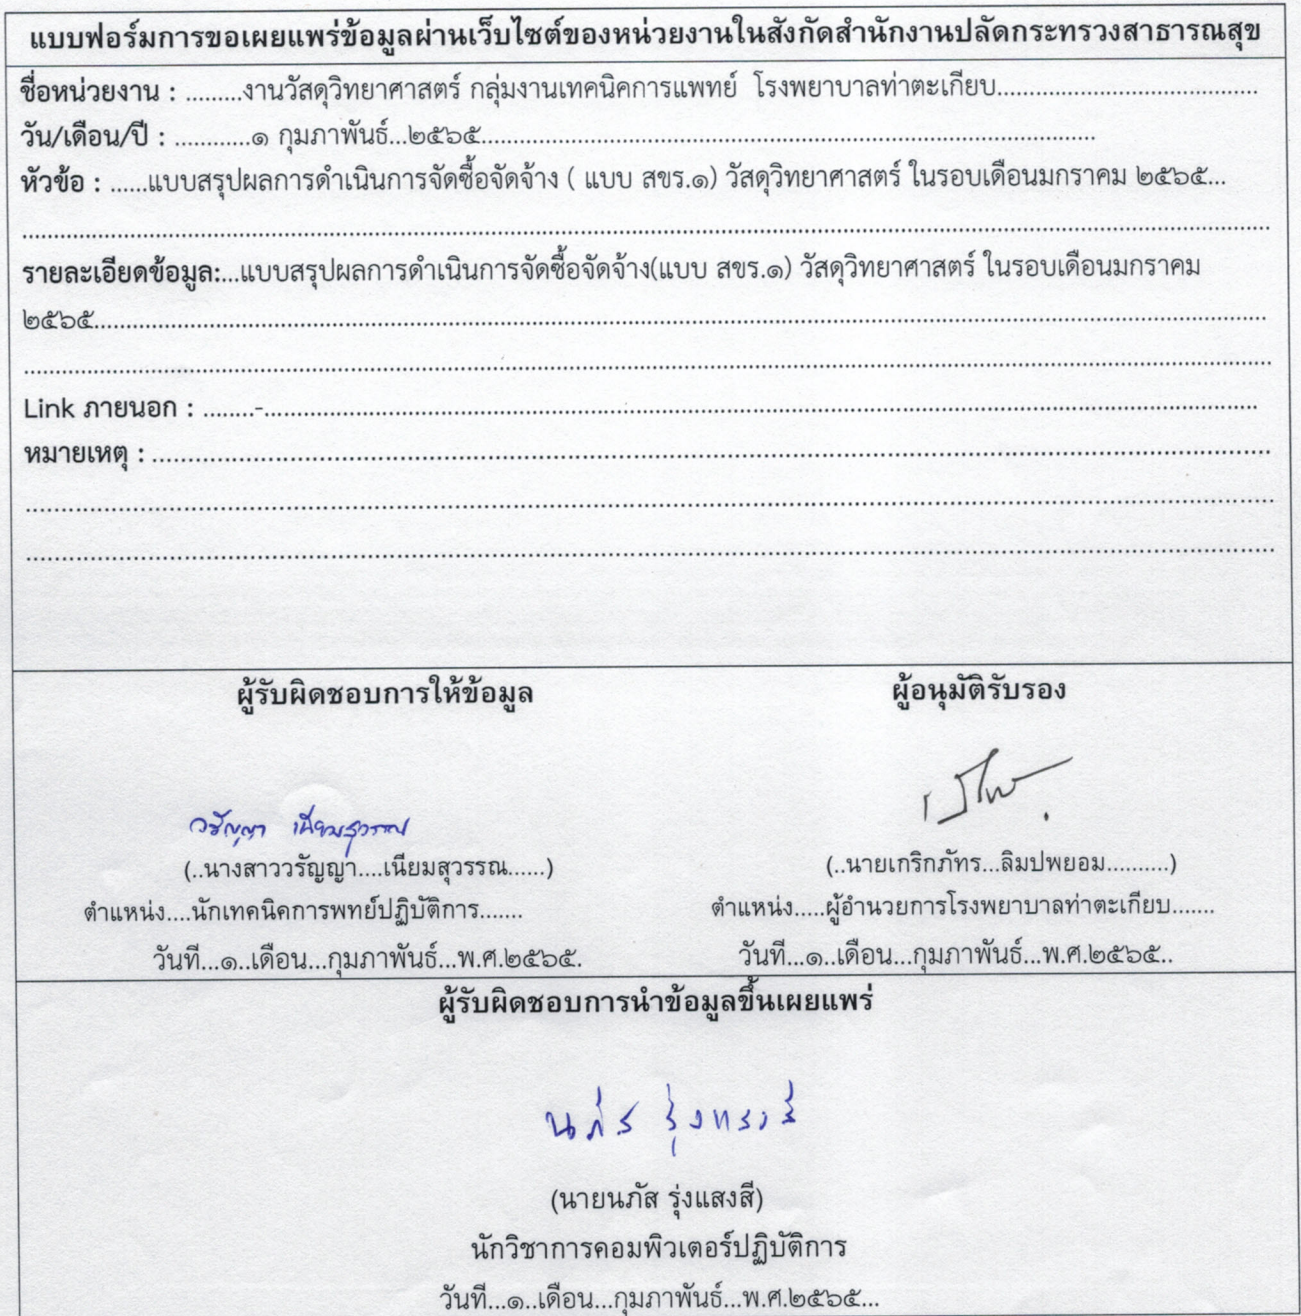 แบบฟอร์มการขอเผยแพร่ข้อมูลผ่านเว็บไซต์ของหน่วยงานในสังกัดสำนักงานปลัดกระทรวงสาธารณสุข
ชื่อหน่วยงาน : .........งานวัสดุวิทยาศาสตร์ กลุ่มงานเทคนิคการแพทย์ โรงพยาบาลท่าตะเกียบ.......................................
วัน/เดือน/ปี : ............๑ กุมภาพันธ์...๒๕๖๕..........................................................................................
หัวข้อ : ......แบบสรุปผลการดำเนินการจัดซื้อจัดจ้าง ( แบบ สขร.๑) วัสดุวิทยาศาสตร์ ในรอบเดือนมกราคม ๒๕๖๕...
รายละเอียดข้อมูล:...แบบสรุปผลการดำเนินการจัดซื้อจัดจ้าง(แบบ สขร.๑) วัสดุวิทยาศาสตร์ ในรอบเดือนมกราคม
๒๕๖๕..........................................................................................
Link ภายนอก : ........-..........................................................................................
หมายเหตุ : ..........................................................................................
ผู้รับผิดชอบการให้ข้อมูล
ผู้อนุมัติรับรอง
วรัญญา เนียมสุวรรณ
(..นางสาววรัญญา....เนียมสุวรรณ......)
(..นายเกริกภัทร...ลิมปพยอม..........)
ตำแหน่ง....นักเทคนิคการพทย์ปฏิบัติการ.......
ตำแหน่ง.....ผู้อำนวยการโรงพยาบาลท่าตะเกียบ.......
วันที่...๑..เดือน...กุมภาพันธ์...พ.ศ.๒๕๖๕.
วันที่...๑..เดือน...กุมภาพันธ์...พ.ศ.๒๕๖๕..
ผู้รับผิดชอบการนำข้อมูลขึ้นเผยแพร่
นภัส รุ่งแสงสี
(นายนภัส รุ่งแสงสี)
นักวิชาการคอมพิวเตอร์ปฏิบัติการ
วันที่...๑..เดือน...กุมภาพันธ์...พ.ศ.๒๕๖๕...